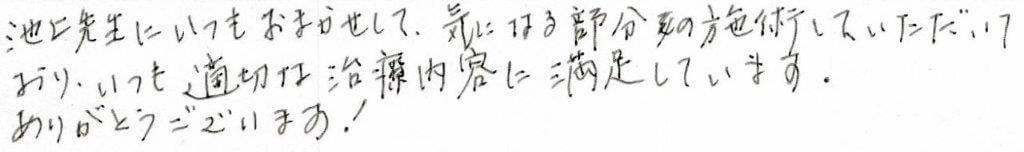 池上先生にいつもおまかせして、気になる部分の施術していただいて
おり、いつも適切な治療内容に満足しています。
ありがとうございます!